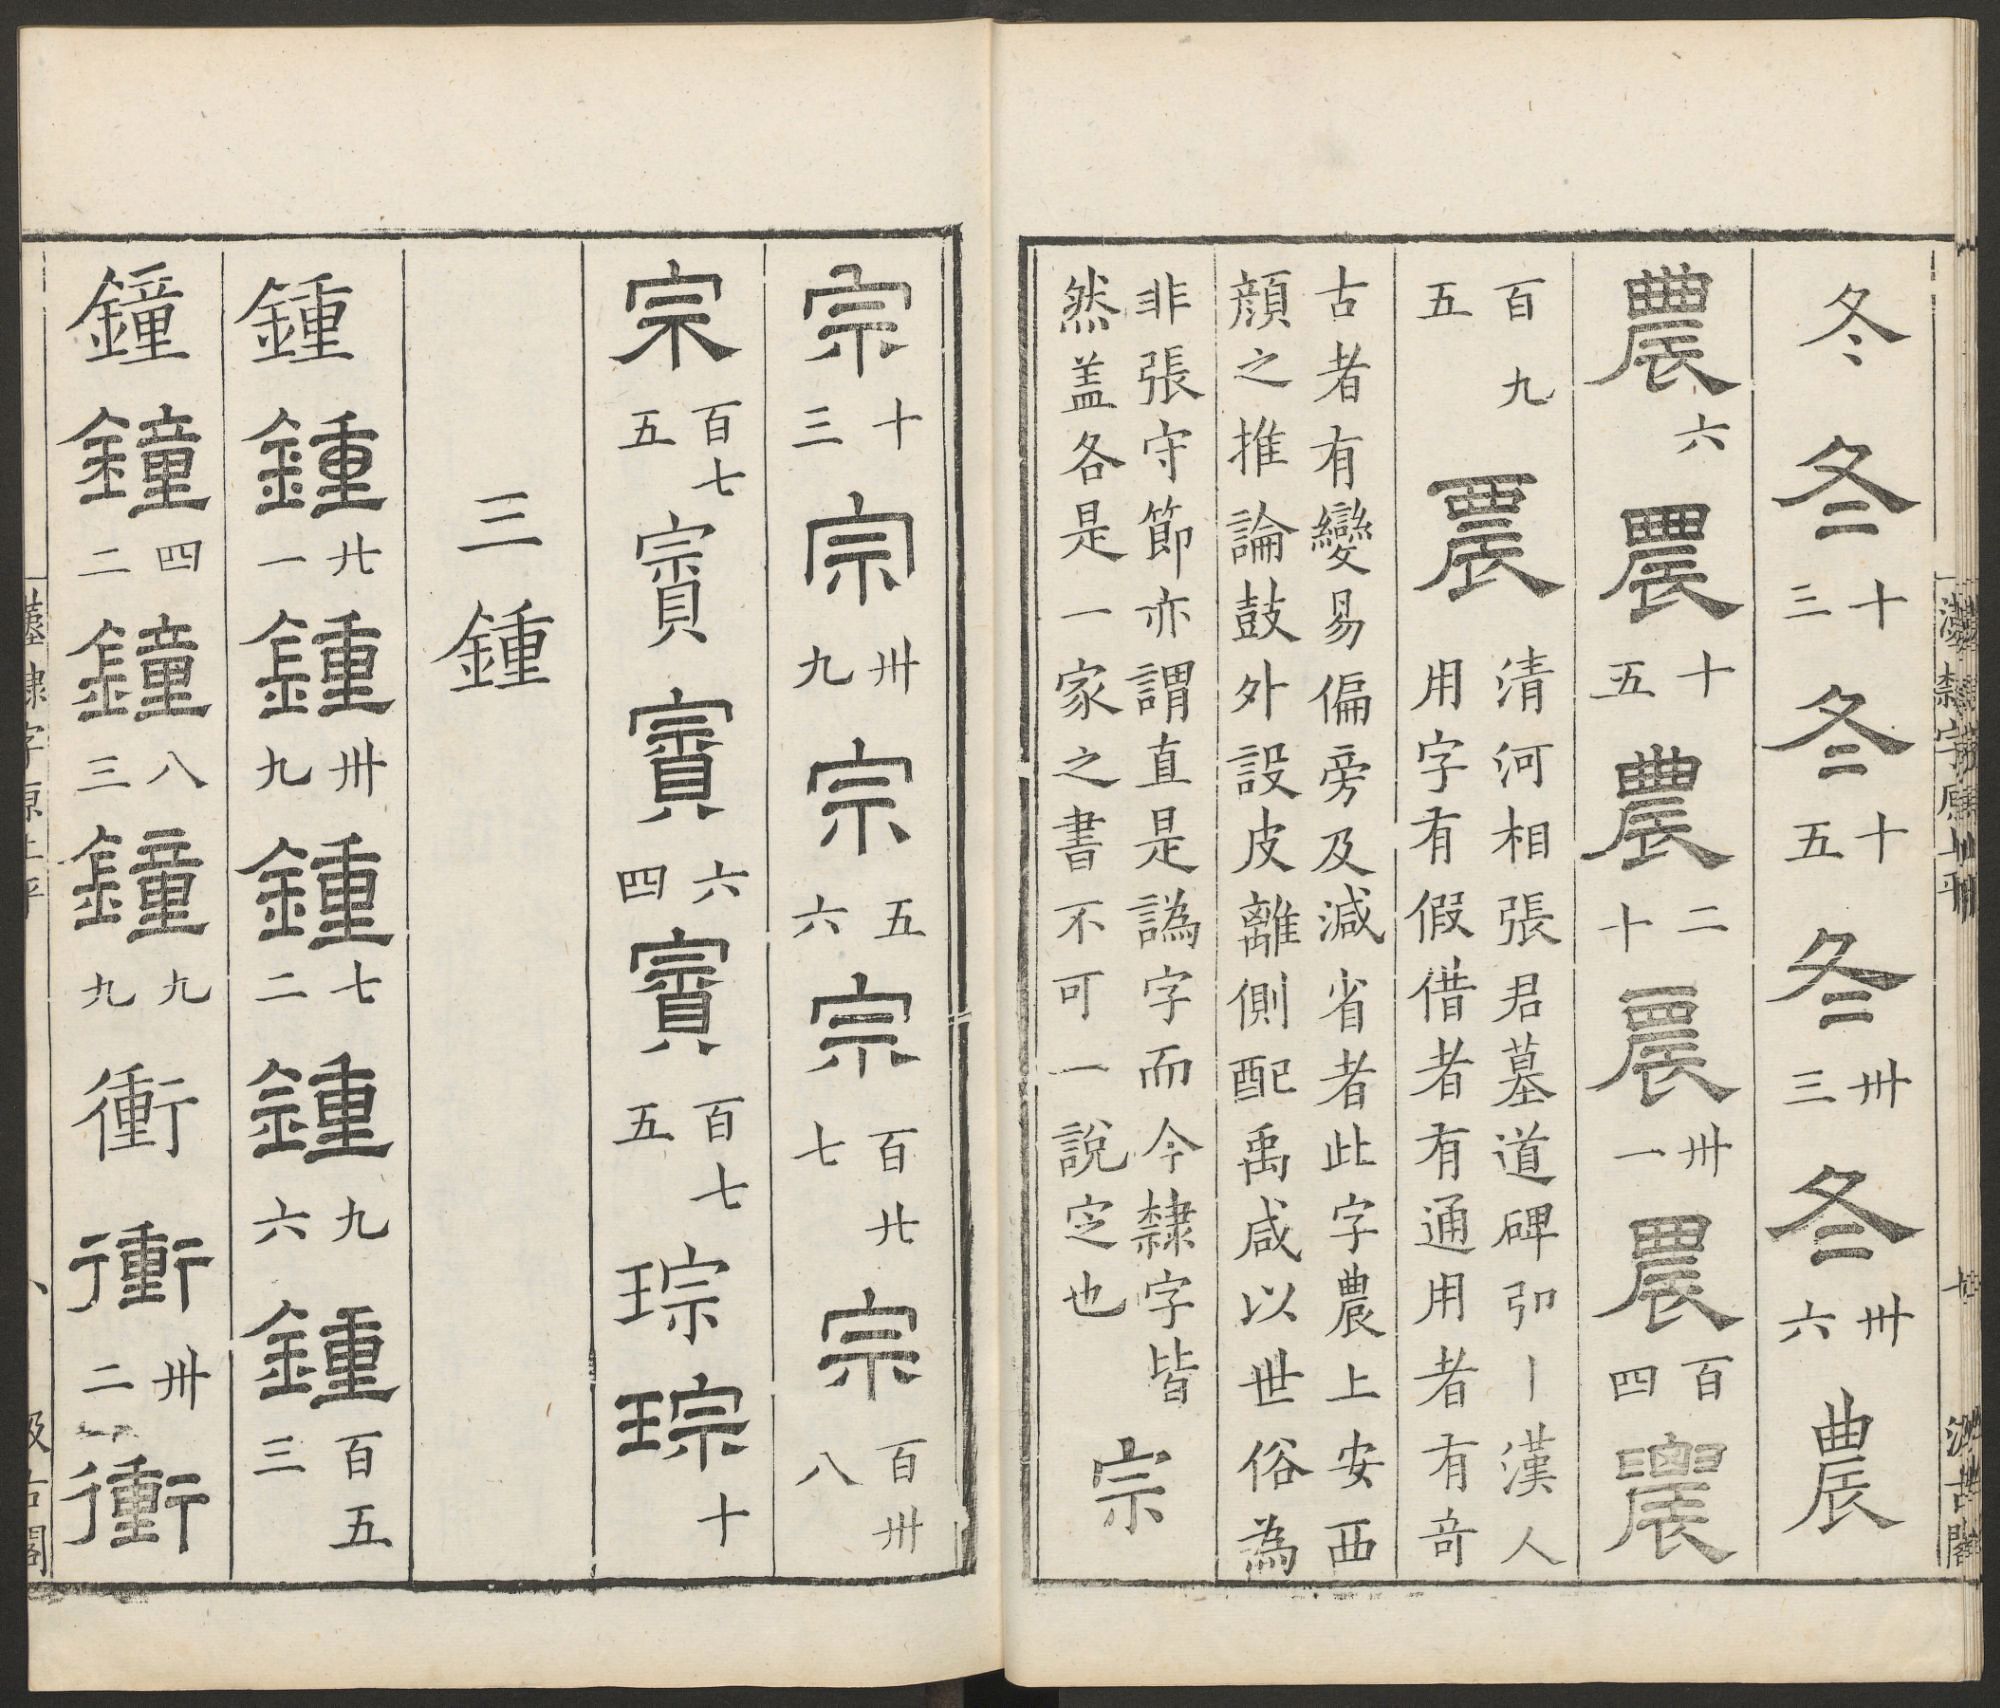 冬 冬十三 冬十五 冬卅三 冬卅六 農
農六 農十五 農二十 農卅一 農百四 農
百九五 農 清河相張君墓道碑引丨漢人
用字有假借者有通用者有奇
古者有變易偏旁及減省者此字農上安西
顔之推論鼓外設皮離側配禹咸以世俗為
非張守節亦謂直是譌字而今隸字皆
然盖各是一家之書不可一說定也 宗
宗十三 宗卅九 宗五六 宗百廿七 宗百卅八
宗百七五 賨 賨六四 賨百七五 琮 琮十
三鍾
鍾 鍾廿一 鍾卅九 鍾七二 鍾九六 鍾百五三
鐘 鐘四二 鐘八三 鐘九九 衝 衝卅二 衝
漢隸字原上平
汲古閣